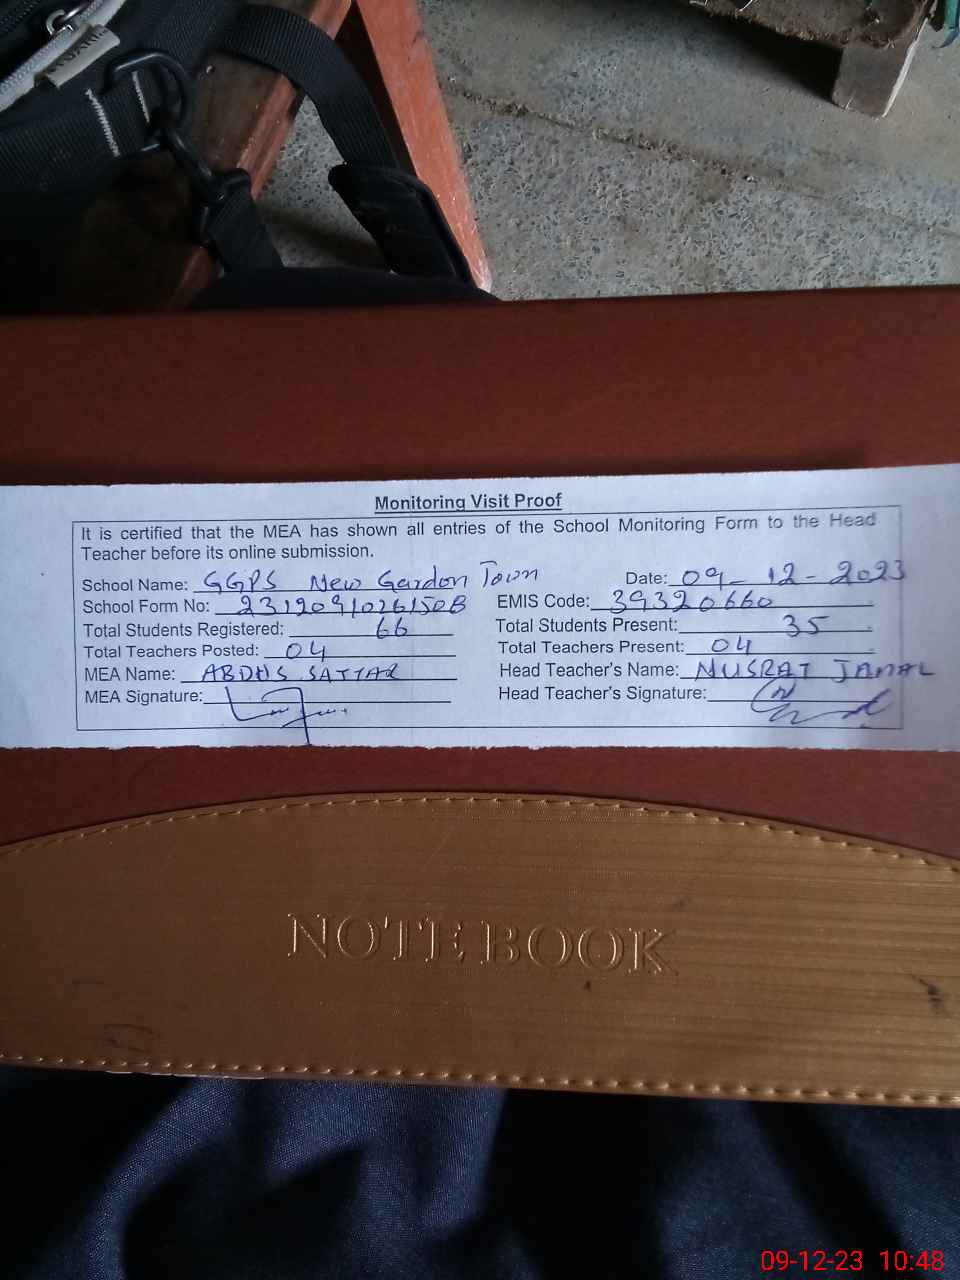 Monitoring Visit Proof
It is certified that the MEA has shown all entries of the School Monitoring Form to the Head
Teacher before its online submission.
School Name: GGPS New Gardon Town Date: 09-12-2023
School Form No: 23120910261508 EMIS Code: 39320660
Total Students Registered: 66 Total Students Present: 35
Total Teachers Posted: 04 Total Teachers Present: 04
MEA Name: ABDUS SATTAR Head Teacher's Name: MUSRAT JAMAL
MEA Signature: Head Teacher's Signature:
NOTEBOOK
09-12-23 10:48